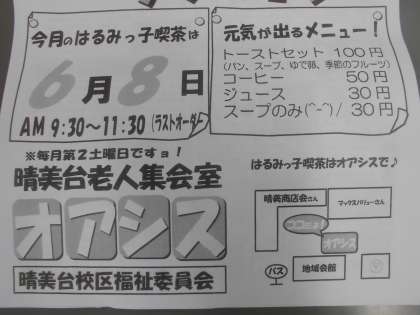 今月のはるみっ子喫茶は
6月8日
AM 9:30～11:30 (ラストオーダー
元気が出るメニュー！
トーストセット 100円
(パン、スープ、ゆで卵、季節のフルーツ)
コーヒー 50円
ジュース 30円
スープのみ(^-^)/ 30円
※毎月第2土曜日ですョ！
晴美台老人集会室
オアシス
晴美台校区福祉委員会
はるみっ子喫茶はオアシスで♪
晴美商店会さん
マックスバリューさん
ココだョ！
オアシス
バス
地域会館